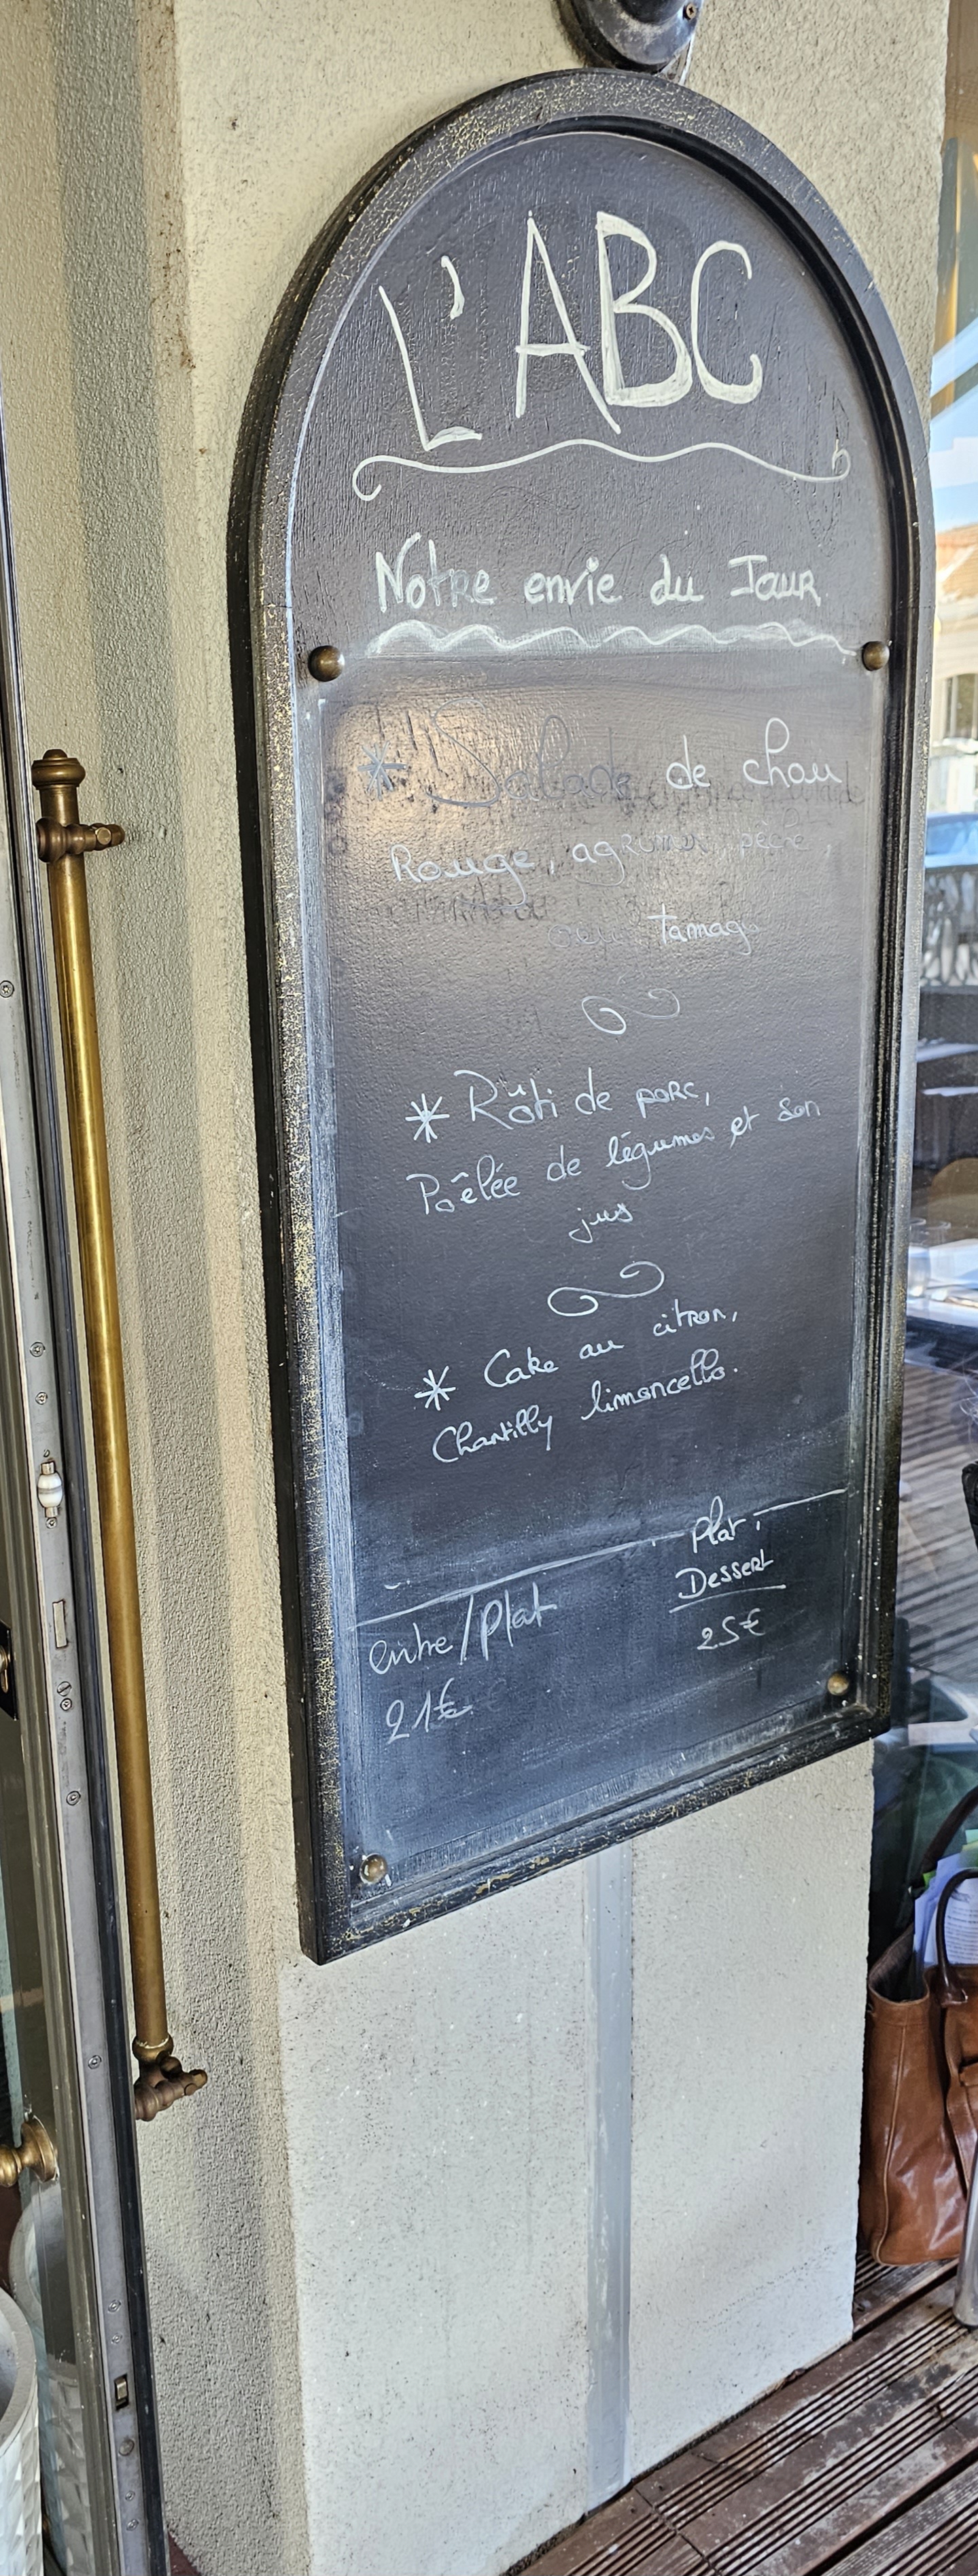 L'ABC
Notre envie du Jour
* Salade de chou
Rouge, agrumes, pêche,
tamago
* Rôti de porc,
Poêlée de légumes et son
jus
* Cake au citron,
Chantilly limoncello.
entre/plat
21€
Plat
Dessert
25€